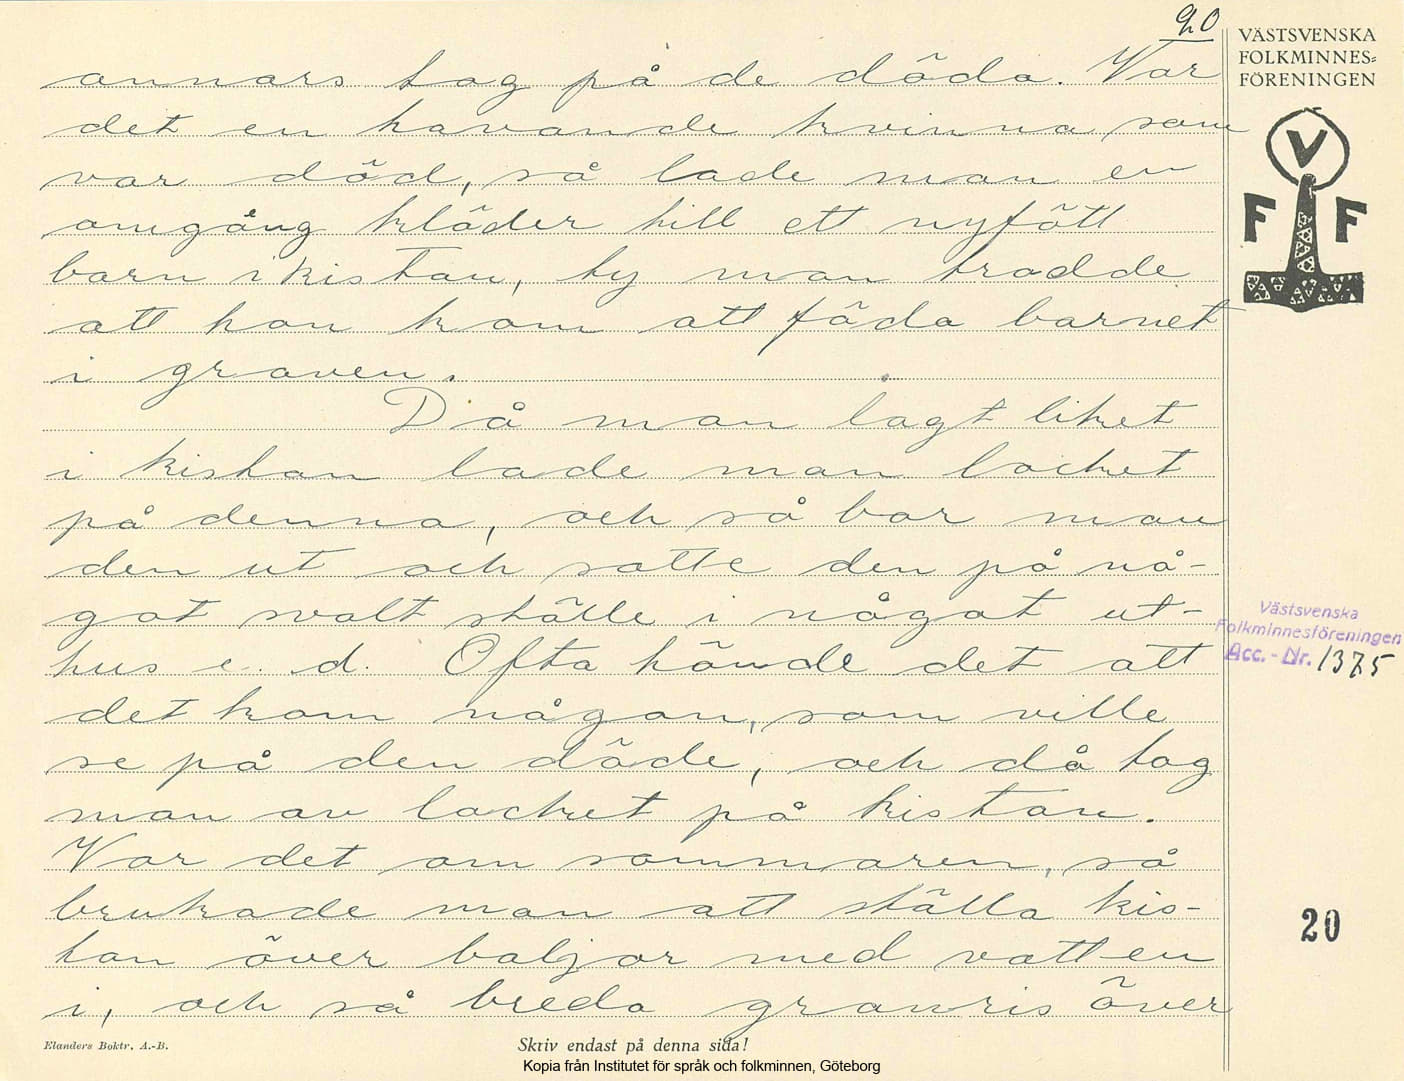 20
annars tog på de döda. Var
det en havande kvinna som
var död, så lade man en
omgång kläder till ett nyfött
barn i kistan, ty man trodde
att hon kom att föda barnet
i graven.
Då man lagt liket
i kistan lade man locket
på denna, och så bar man
den ut och satte den på nå-
got svalt ställe i något ut-
hus e. d. Ofta hände det att
det kom någon, som ville
se på den döde, och då tog
man av locket på kistan.
Var det om sommaren, så
brukade man att ställa kis-
tan över baljor med vatten
i, och så breda granris över
VÄSTSVENSKA
FOLKMINNES=
FÖRENINGEN
V
F F
Västsvenska
Folkminnesföreningen
Acc. - Nr. 1375
20
Elanders Boktr. A.-B.
Skriv endast på denna sida!
Kopia från Institutet för språk och folkminnen, Göteborg